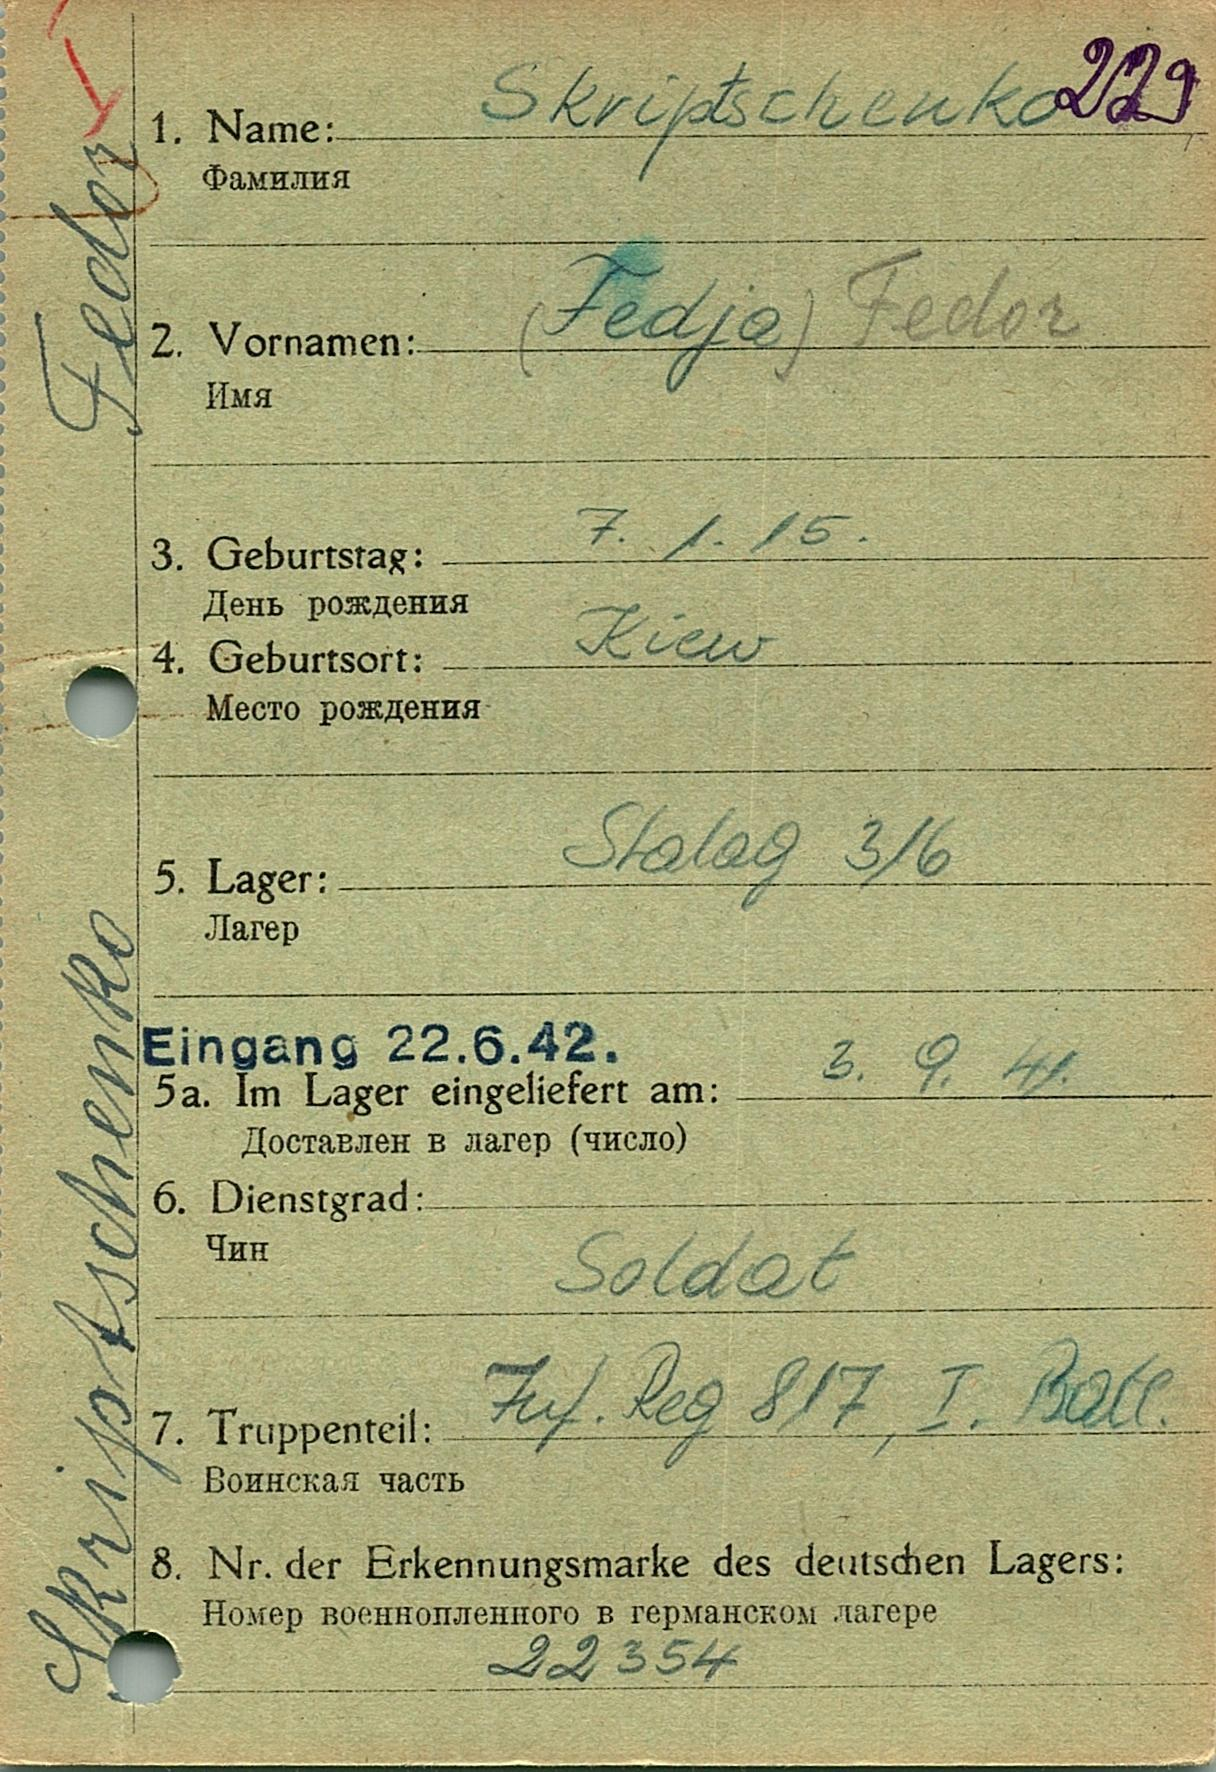 229
1. Name: Skriptschenko
Фамилия
2. Vornamen: (Fedja) Fedor
Имя
3. Geburtstag: 7. 1. 15.
День рождения
4. Geburtsort: Kiew
Место рождения
5. Lager: Stalag 316
Лагер
Eingang 22.6.42.
5a. Im Lager eingeliefert am: 3. 9. 41.
Доставлен в лагер (число)
6. Dienstgrad:
Чин
Soldat
7. Truppenteil: Inf. Reg 817, I. Batl.
Воинская часть
8. Nr. der Erkennungsmarke des deutschen Lagers:
Номер военнопленного в германском лагере
22354
Skriptschenko Fedor